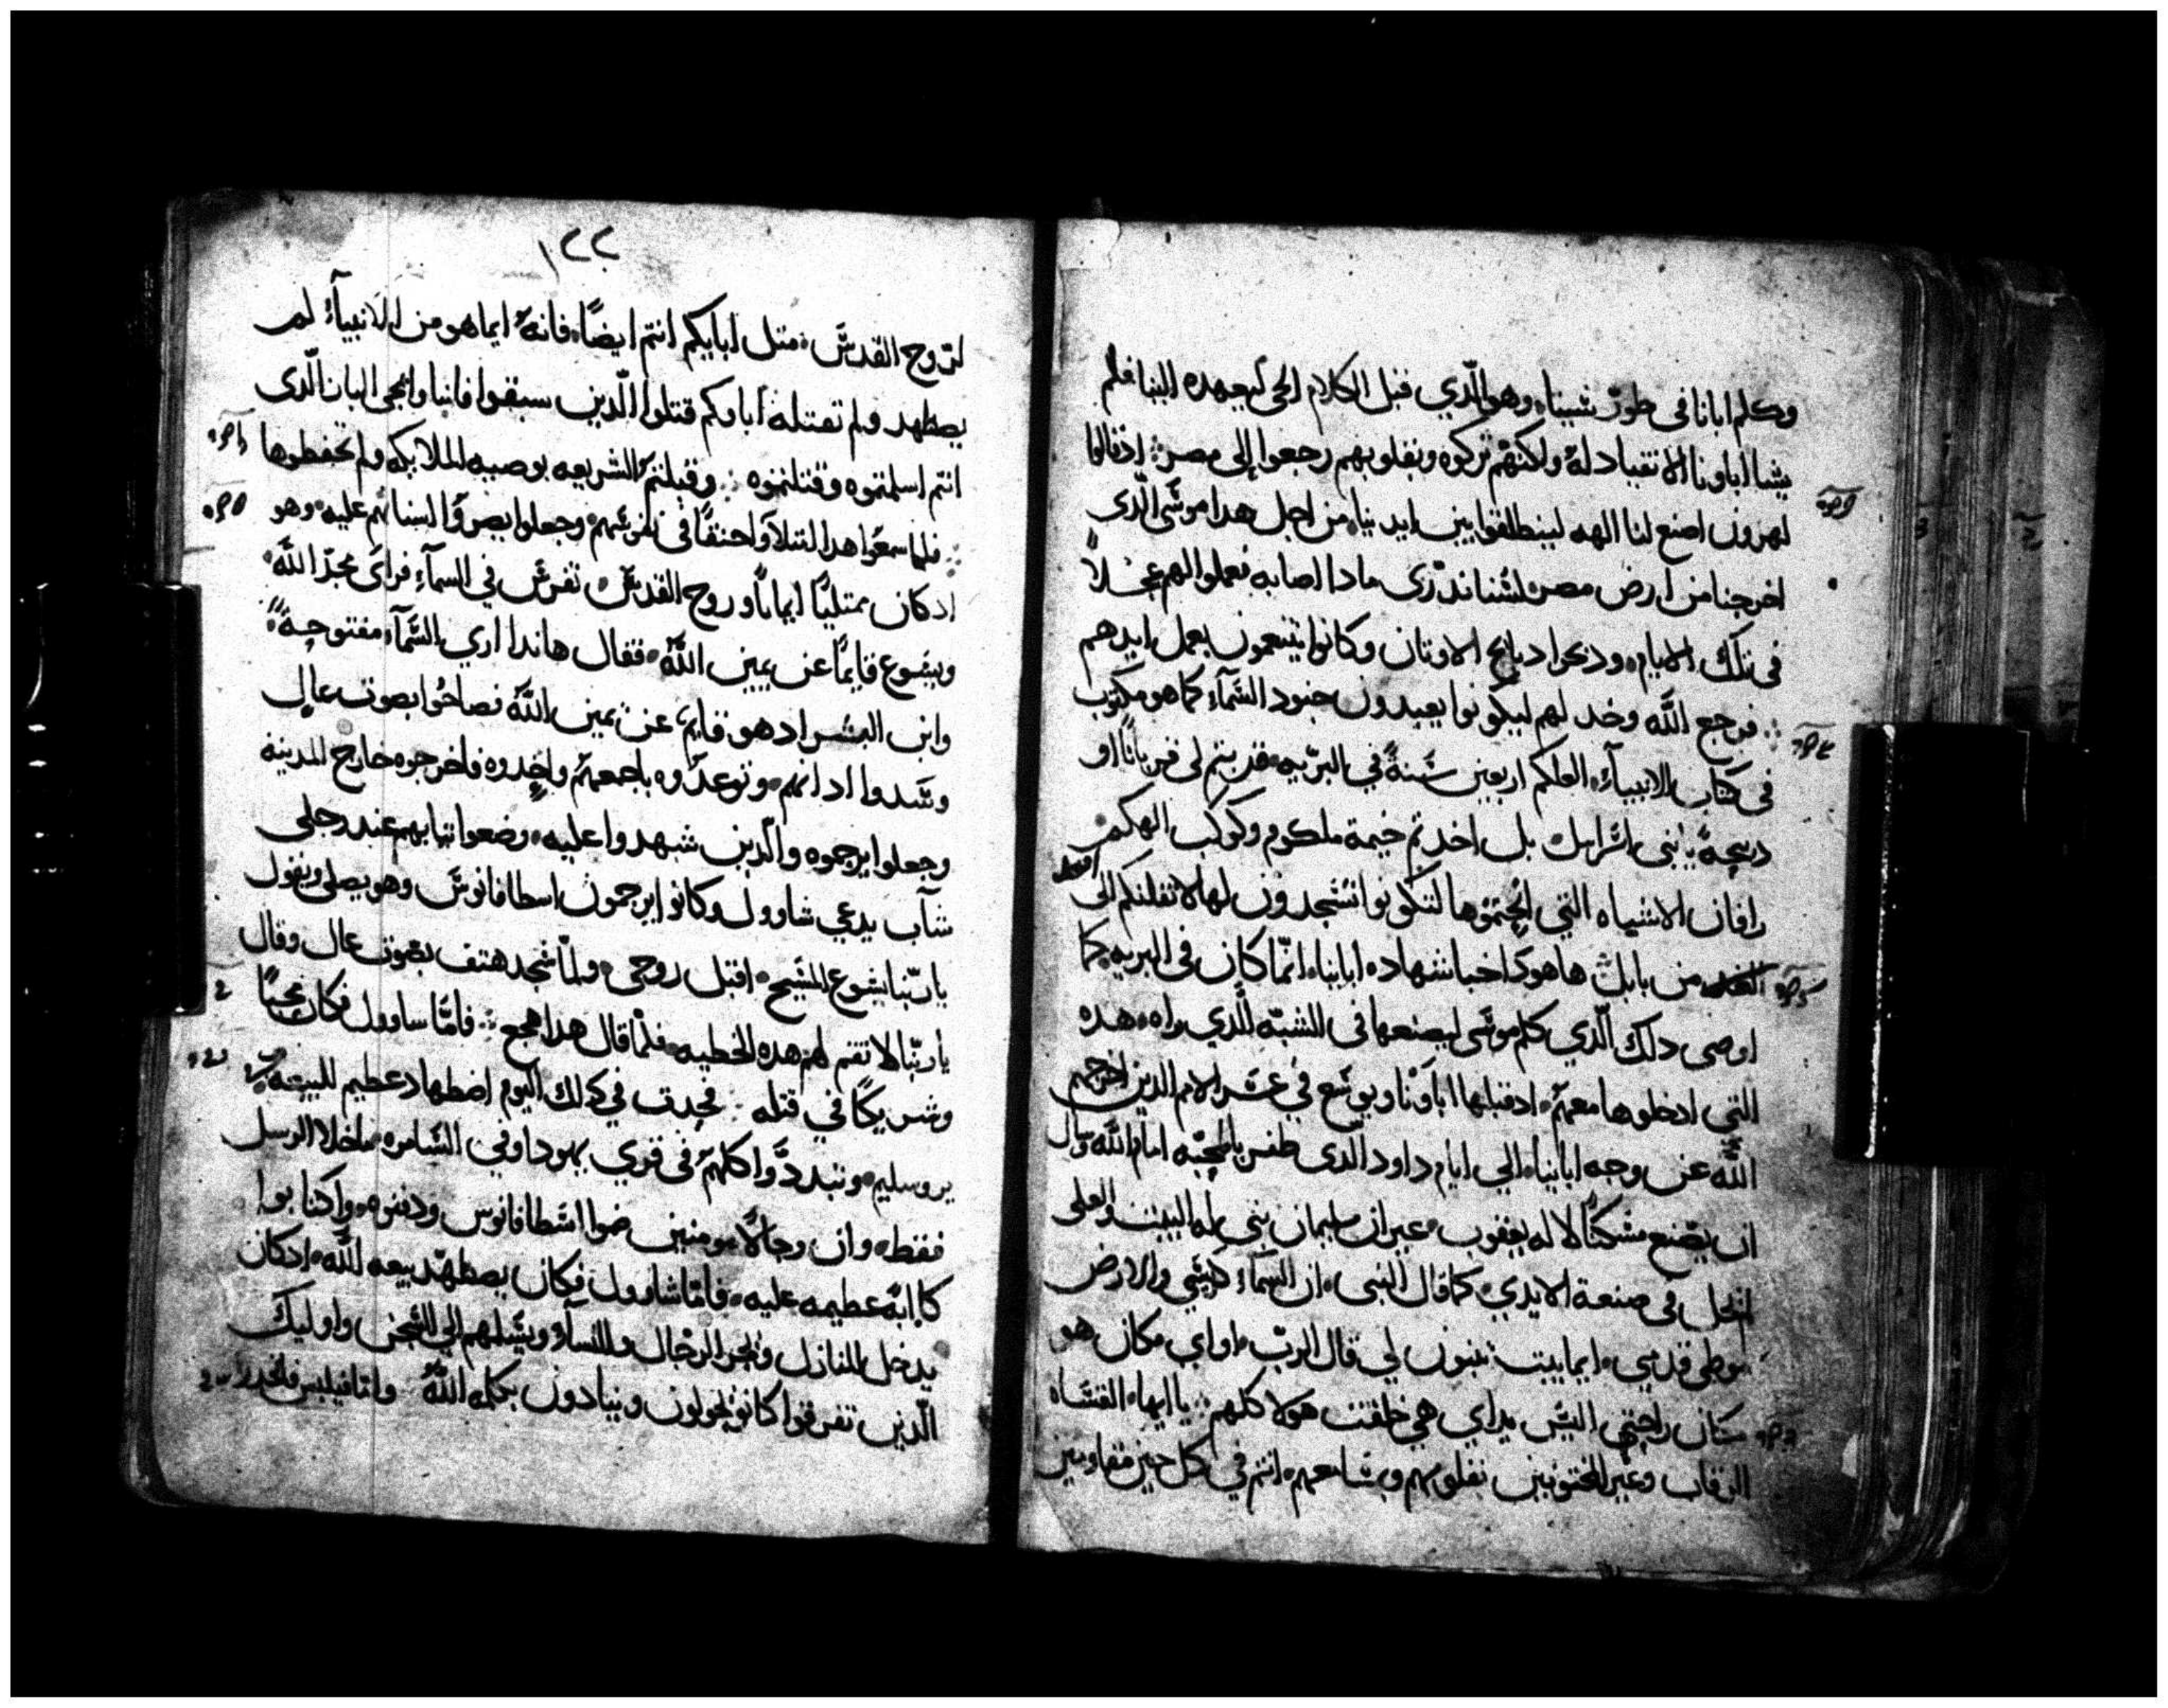 وكلم ابانا في طور سينا وهو الذي قبل الكلام الحي ليعهده الينا فلم
يشا اباونا الانقياد له ولكنهم تركوه وبقلوبهم رجعوا الى مصر اذ قالوا
لهرون اصنع لنا الهه لينطلقوا بين ايدينا من اجل هدا موسى الدي
اخرجنا من ارض مصر لسنا ندرى مادا اصابه فعملوا لهم عجلاً
في تلك الايام ودبحوا دبايح الاوتان وكانوا يتنعمون بعمل ايدهم
فرجع الله وخدلهم ليكونوا يعبدون جنود السمآء كما هو مكتوب
في كتاب الانبيآء العلكم اربعين سنةً في البريه قربتم لي قرباناً او
دبيحةً يا بني اسرايل بل اخدتم خيمة ملكوم وكوكب الهكم
رافان الاشياه التي نحتموها لتكونوا تسجدون لها لانقلنكم الى
من بابل ها هودا خبا شهاده ابايناء انما كان في البريه كما
اوصى دلك الذي كلم موسى ليصنعها في الشبه الذي راه هده
التي ادخلوها معهم اد قبلها اباونا ويوشع في الامم الدين اخرجهم
الله عن وجه اباينا الى ايام داود الدى ظفر بالمحبه امام الله وسال
ان يصنع مسكناً لاله يعقوب غير ان سليمان بني له البيت والعلى
لم يحل في صنعة الايدي كما قال النبي ان السمآء كرسي والارض
موطى قدمي ايما بيت تبنون لي قال الرب او اي مكان هو
مكان راحتي اليس يداي هي خلقت هولا كلهم يا ايها القساه
الرقاب وغير المختونين بقلوبهم وبمسامعهم انتم في كل حين مقاومين
١٢٢
لروح القدس متل ابايكم انتم ايضاً فانه ايما هو من الانبيآء لم
يضطهد ولم تقتله اباوكم قتلوا الذين سبقوا فانبا وابمجى البار الدى
انتم اسلمتموه وقتلتموه وقبلتم الشريعه بوصيه الملايكه ولم تحفظوها
فلما سمعوا هدا امتلآوا حنقاً في انفسهم وجعلوا يصروا اسنانهم عليه وهو
اد كان ممتلياً ايماناً وروح القدس تفرس في السمآء فراى مجد الله
ويسوع قايماً عن يمين الله فقال هاندا اري السمآء مفتوحةً
وابن البشر اد هو قايم عن يمين الله فصاحوا بصوت عال
وسدوا ادانهم وتوعدوه باجمعهم واخدوه فاخرجوه خارج المدينه
وجعلوا يرجموه والدين شهدوا عليه وضعوا تيابهم عند رجلي
شآب يدعي شاوول وكانوا يرجمون اسطافانوس وهو يصلي ويقول
يا ربنا يسوع المسيح اقبل روحي ولما سجد هتف بصوت عال وقال
يا ربنا لا تقم لهم هده الخطيه فلما قال هدا هجع فاما ساوول فكان محباً
وشريكاً في قتله فحدت في دلك اليوم اضطهاد عظيم للبيعه
يروسليم وتبددوا كلهم في قري يهودا وفي السامره ما خلا الرسل
فقط وان رجالاً مومنين ضموا اسطافانوس ودفنوه واكتابوا
كابه عظيمه عليه فاما شاوول فكان يضطهد بيعه الله اد كان
يدخل المنازل ويجر الرجال والنسآء ويسلمهم الى السجن واوليك
الدين تفرقوا كانوا يجولون وينادون بكلمه الله واما فيلبس فانحدر